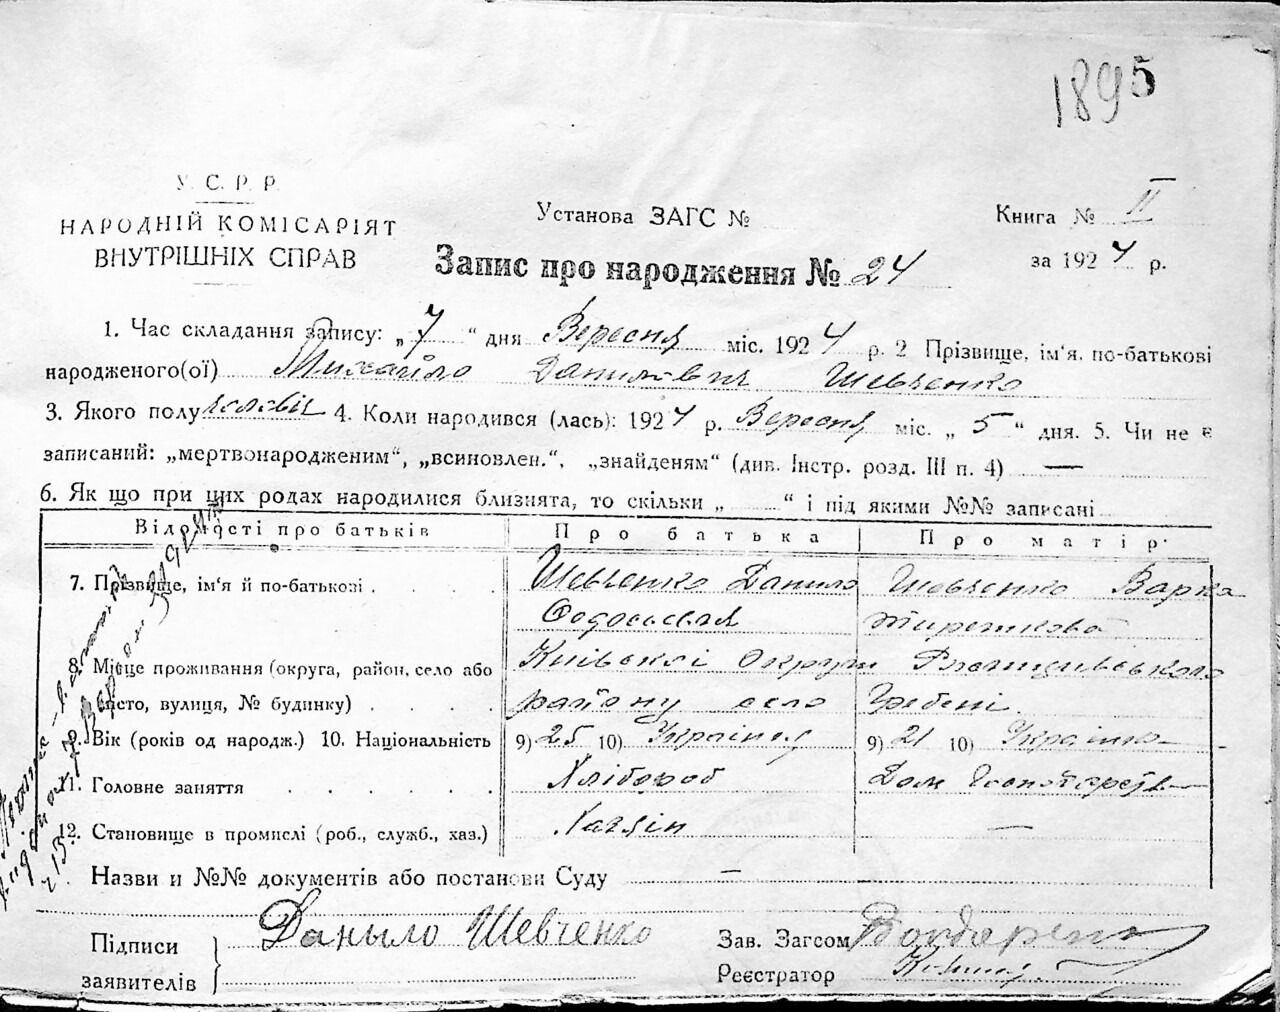 1895
У. С. Р. Р.
НАРОДНІЙ КОМІСАРІЯТ
ВНУТРІШНІХ СПРАВ
Установа ЗАГС №
Книга № II
Запис про народження № 24
за 1924 р.
1. Час складання запису: „7“ дня Вересня міс. 1924 р. 2 Прізвище, ім‘я, по-батькові
народженого(ої) Михайло Данилович Шевченко
3. Якого полу чоловіч 4. Коли народився (лась): 1924 р. Вересня міс. „5“ дня. 5. Чи не є
записаний: „мертвонародженим“, „всиновлен.“, „знайденям“ (див. Інстр. розд. III п. 4) —
6. Як що при цих родах народилися близнята, то скільки „ “ і під якими №№ записані
Відомості про батьків Про батька Про матір
7. Прізвище, ім‘я й по-батькові . . . . Шевченко Данило Шевченко Варка
Федосієвич
8. Місце проживання (округа, район, село або Київскої Округи
місто, вулиця, № будинку) . . . . району село Гребені
9. Вік (років од народж.) 10. Національність 9) 25 10) Українец 9) 21 10) Українка
11. Головне заняття . . . . . . Хлібороб Дом
12. Становище в промислі (роб., служб., хаз.) Хазяїн —
Назви и №№ документів або постанови Суду —
Підписи
заявителів
Даныло Шевченко
Зав. Загсом Бондаренко
Реєстратор